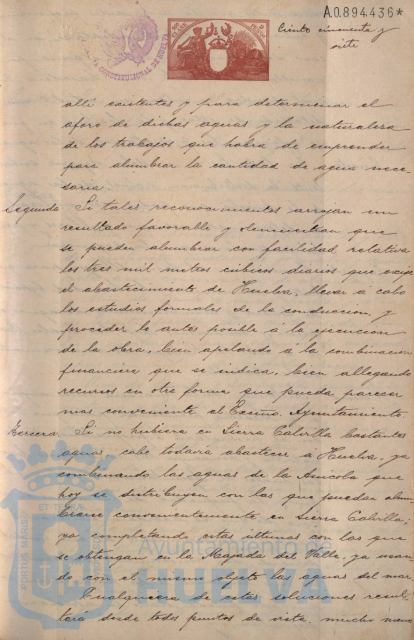 A.0.894.436*
Ciento cincuenta y
siete
CONSTITUCIONAL DE HUELVA
allí existentes y para determinar el
aforo de dichas aguas y la naturaleza
de los trabajos que habrá de emprender
para alumbrar la cantidad de agua nece-
saria.
Segunda Si tales reconocimientos arrojan un
resultado favorable y demuestran que
se pueden alumbrar con facilidad relativa
los tres mil metros cúbicos diarios que exije
el abastecimiento de Huelva, llevar á cabo
los estudios formales de la conducción, y
proceder lo antes posible á la ejecución
de la obra, bien apelando á la combinación
financiera que se indica, bien allegando
recursos en otra forma que pueda parecer
mas conveniente al Excmo. Ayuntamiento.
Tercera. Si no hubiera en Sierra Calvilla bastantes
aguas, cabe todavía abastecer a Huelva, ya
combinando las aguas de la que
hoy se distribuyen con las que puedan alum-
brarse convenientemente en Sierra Calvilla,
ya completando estas últimas con las que
se obtengan en la Majada del Valle, ya usan-
do con el mismo objeto las aguas del mar.
Cualquiera de estas soluciones resul-
tará desde todos puntos de vista, mucho mas
PORTUS MARIS ET TERRAE
Ayuntamiento de
HUELVA